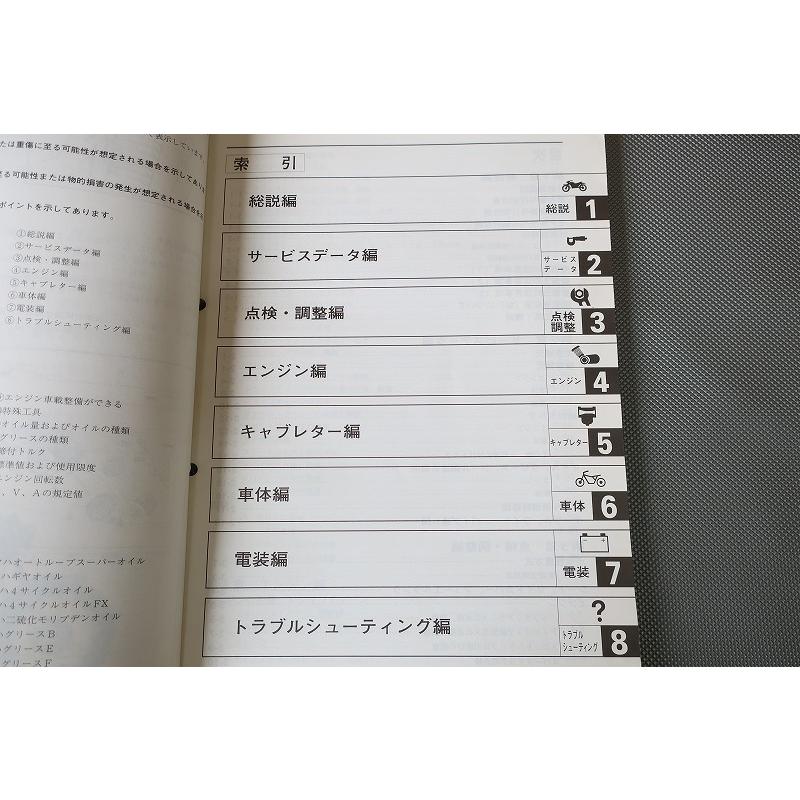 表示しています。
たは重傷に至る可能性が想定される場合を示してあり
至る可能性または物的損害の発生が想定される場合を
ポイントを示してあります。
①総説編
②サービスデータ編
③点検・調整編
④エンジン編
⑤キャブレター編
⑥車体編
⑦電装編
⑧トラブルシューティング編
エンジン車載整備ができる
特殊工具
オイル量およびオイルの種類
グリースの種類
締付トルク
標準値および使用限度
エンジン回転数
、V、Aの規定値
ハオートループスーパーオイル
ハギヤオイル
ハ4サイクルオイル
ハ4サイクルオイルFX
ハ二硫化モリブデンオイル
ハグリースB
ハグリースE
ハグリースF
索 引
総説編
総説 1
サービスデータ編
サービス
データ 2
点検・調整編
点検
調整 3
エンジン編
エンジン 4
キャブレター編
キャブレター 5
車体編
車体 6
電装編
電装 7
トラブルシューティング編
?
トラブル
シューティング 8